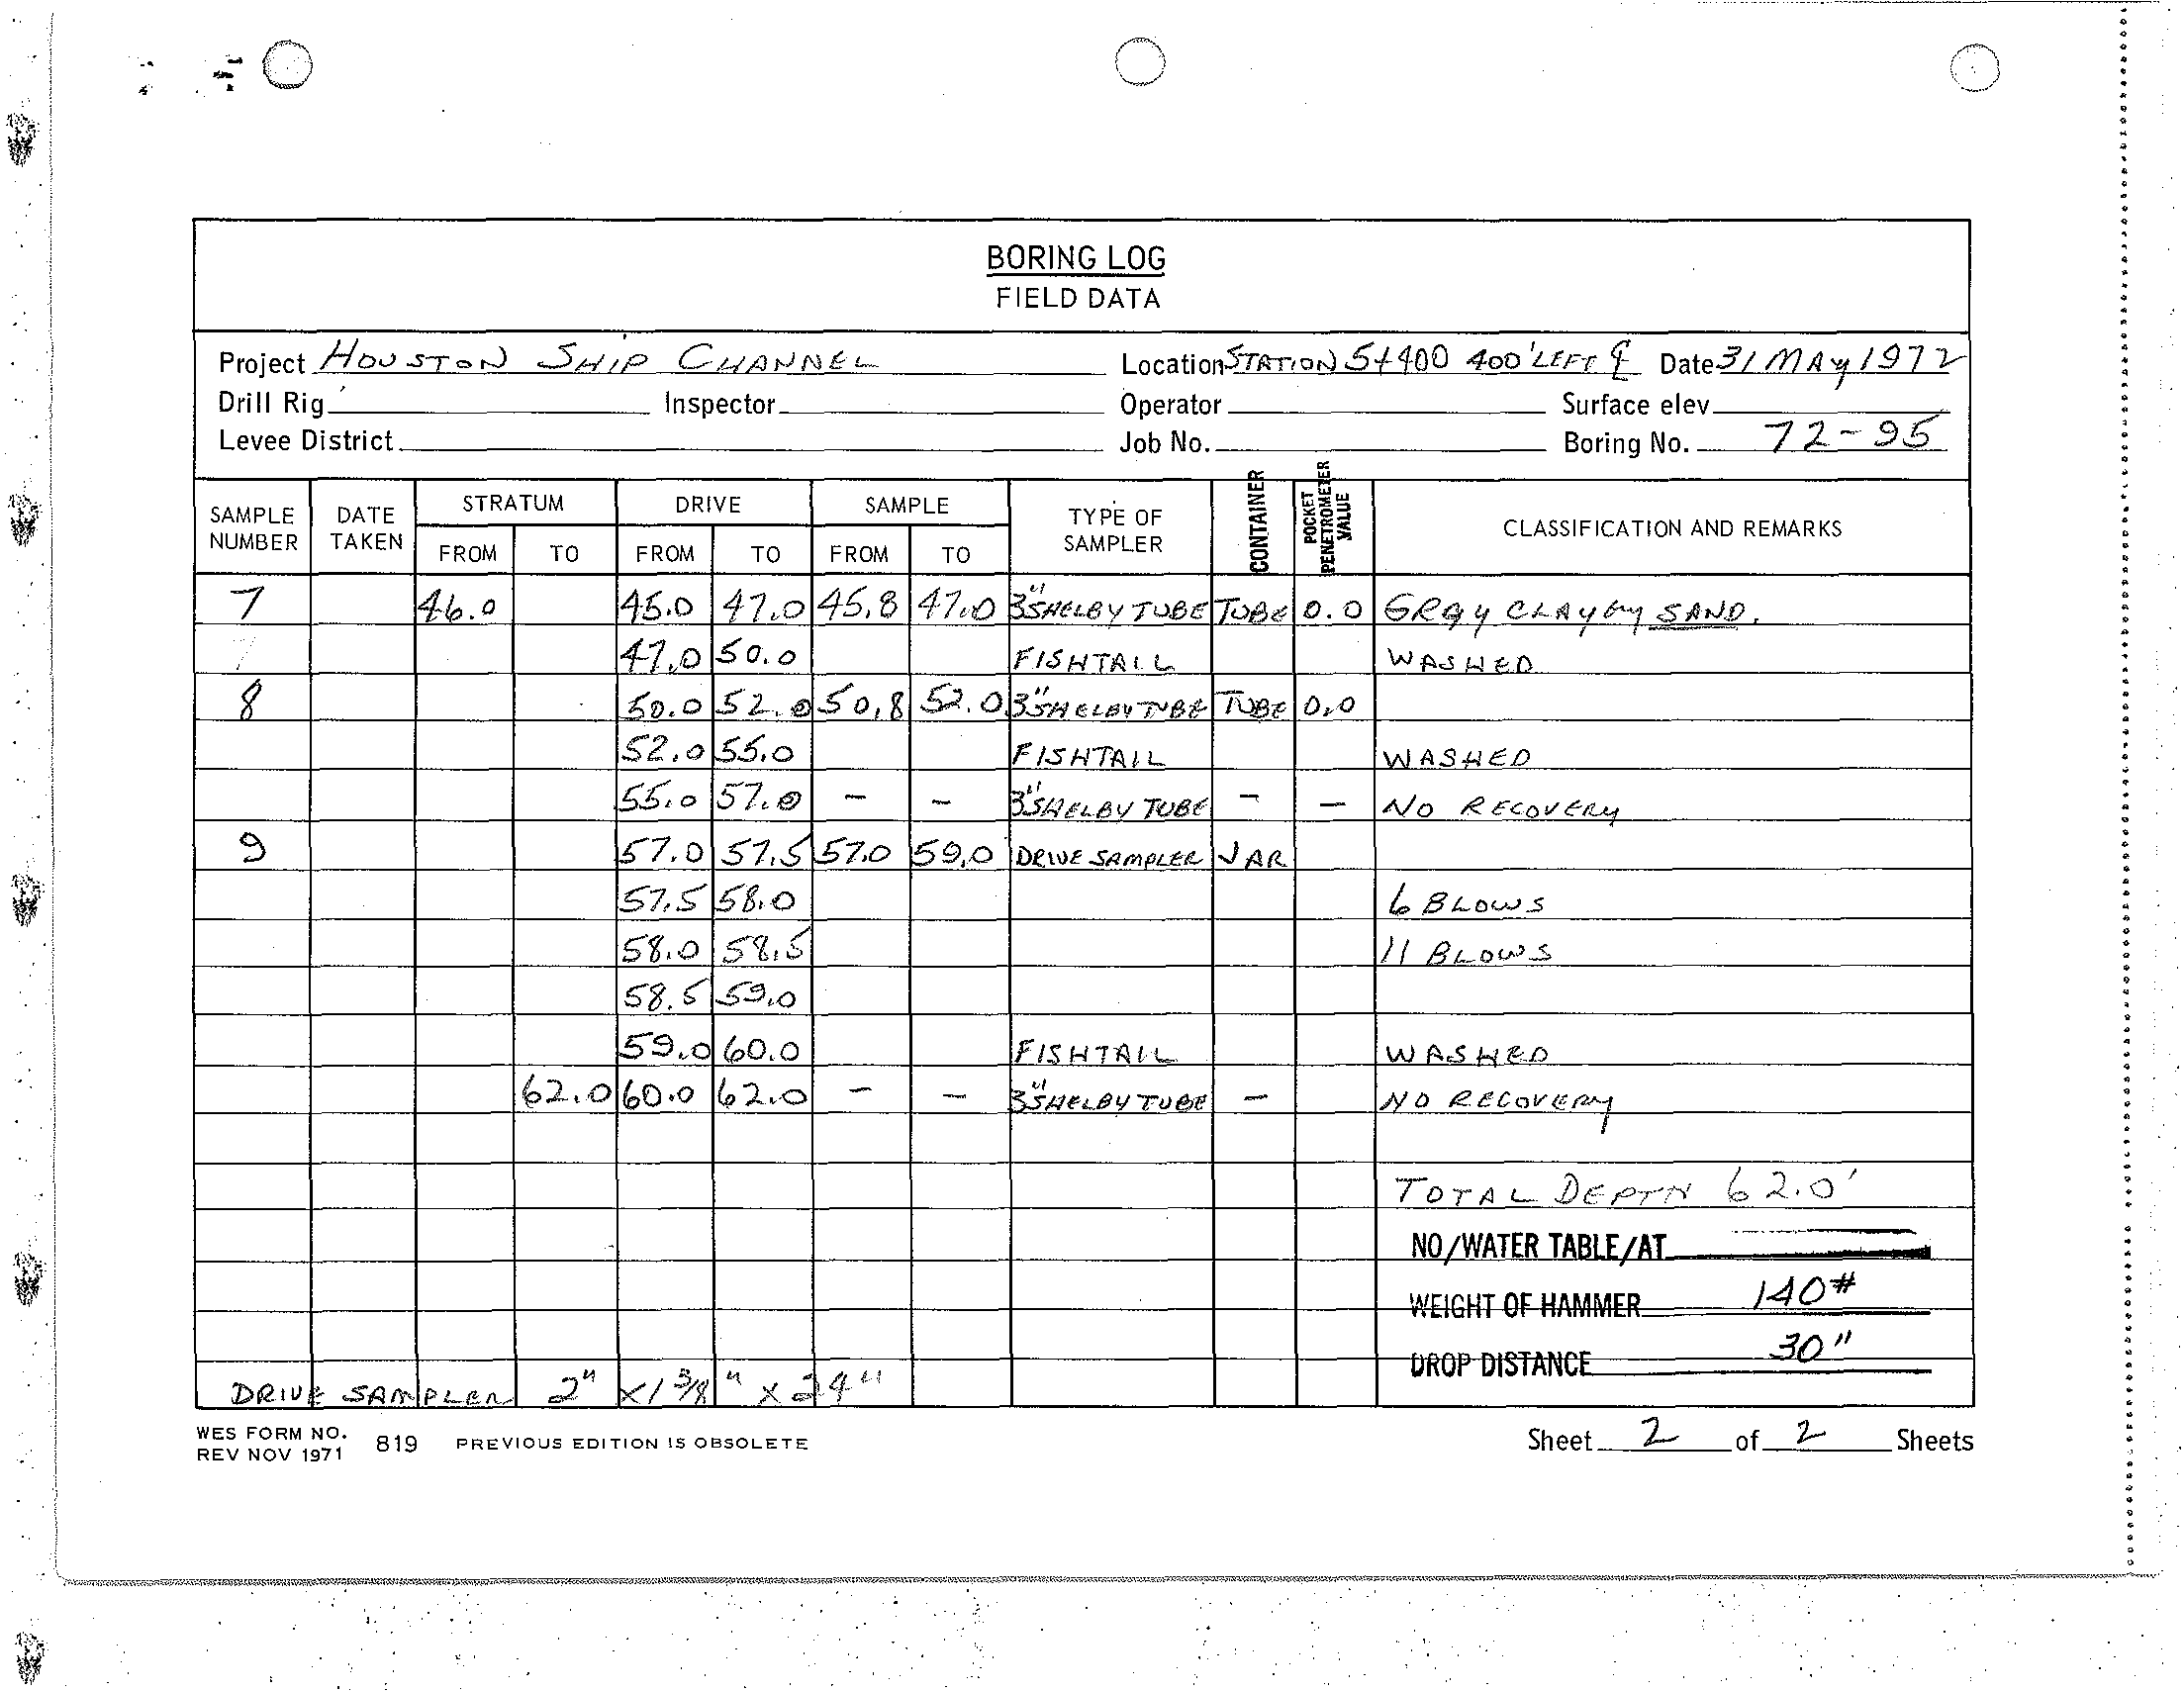 BORING LOG
FIELD DATA
Project HOUSTON SHIP CHANNEL Location STATION 5+400 400' LEFT ℄ Date 31 MAY 1972
Drill Rig Inspector Operator Surface elev.
Levee District Job No. Boring No. 72-95
SAMPLE NUMBER DATE TAKEN STRATUM FROM TO DRIVE FROM TO SAMPLE FROM TO TYPE OF SAMPLER CONTAINER POCKET PENETROMETER VALUE CLASSIFICATION AND REMARKS
7 46.0 45.0 47.0 45.8 47.0 3" SHELBY TUBE TUBE 0.0 GRAY CLAYEY SAND.
7 47.0 50.0 FISHTAIL WASHED
8 50.0 52.0 50.8 52.0 3" SHELBY TUBE TUBE 0.0
52.0 55.0 FISHTAIL WASHED
55.0 57.0 - - 3" SHELBY TUBE - - NO RECOVERY
9 57.0 57.5 57.0 59.0 DRIVE SAMPLER JAR
57.5 58.0 6 BLOWS
58.0 58.5 11 BLOWS
58.5 59.0
59.0 60.0 FISHTAIL WASHED
62.0 60.0 62.0 - - 3" SHELBY TUBE - NO RECOVERY
TOTAL DEPTH 62.0'
NO/WATER TABLE/AT
WEIGHT OF HAMMER 140#
DROP DISTANCE 30"
DRIVE SAMPLER 2" X 1 3/8" X 24"
WES FORM NO. 819 PREVIOUS EDITION IS OBSOLETE Sheet 2 of 2 Sheets
REV NOV 1971